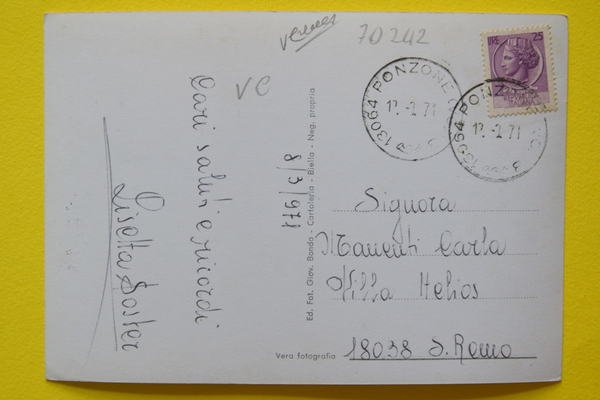 70242
VC
LIRE 25
13064 PONZONE
12.-3.71
13064 PONZONE
12.-3.71
Cari saluti e ricordi
Lisetta Foster
8/3/971
Ed. Fot. Giov. Bonda - Cartoleria - Biella - Neg. propria
Signora
Manenti Carla
Villa Helios
18038 S. Remo
Vera fotografia